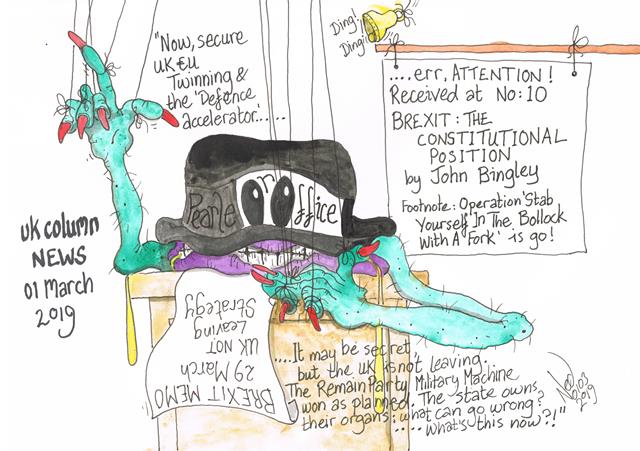 "Now, secure
UK EU
Twinning &
the 'Defence
accelerator'.....
Ding!
Ding!
....err, ATTENTION!
Received at No:10
BREXIT: THE
CONSTITUTIONAL
POSITION
by John Bingley
Footnote: Operation 'Stab
Yourself In The Bollock
With A Fork' is go!
Pearle OrOffice
UK Column
NEWS
01 March
2019
BREXIT MEMO
29 March
UK NOT
Leaving
Strategy
....It may be secret,
but the UK is not leaving.
The Remain Party Military Machine
won as planned. The state owns
their organs: what can go wrong?
.....what's this now?!"
03
2019